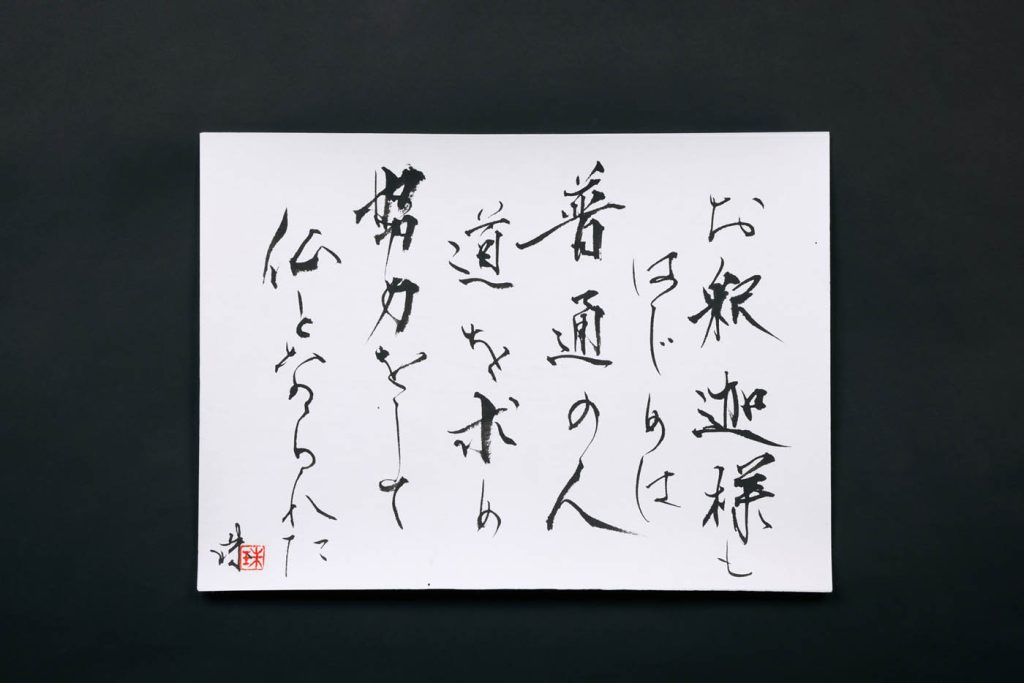 お釈迦様も
はじめは
普通の人
道を求め
努力をして
仏となられた
珠
珠